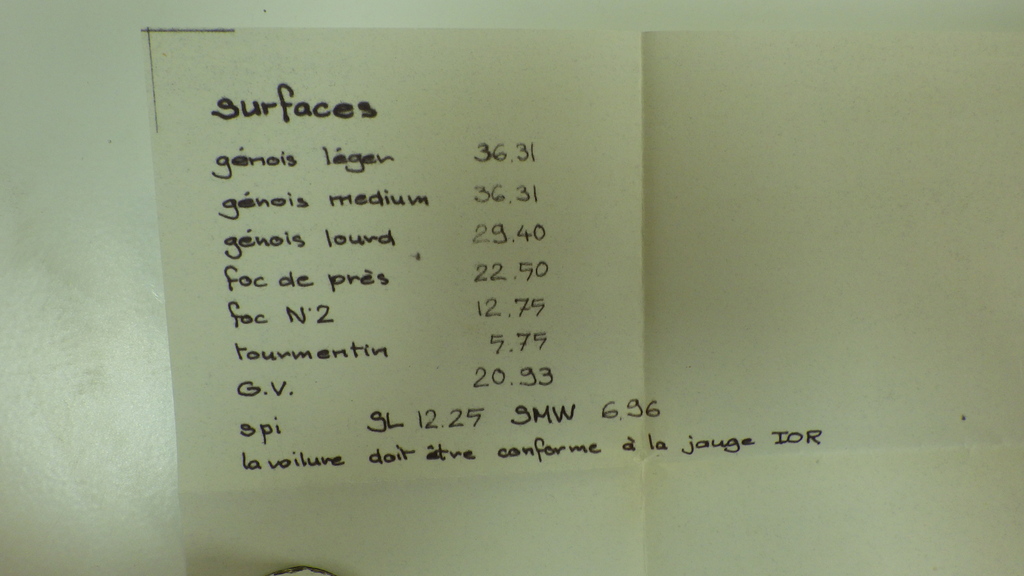 surfaces
génois léger 36.31
génois medium 36.31
génois lourd 29.40
foc de près 22.50
foc N°2 12.75
tourmentin 5.75
G.V. 20.93
spi SL 12.25 SMW 6.96
la voilure doit être conforme à la jauge IOR